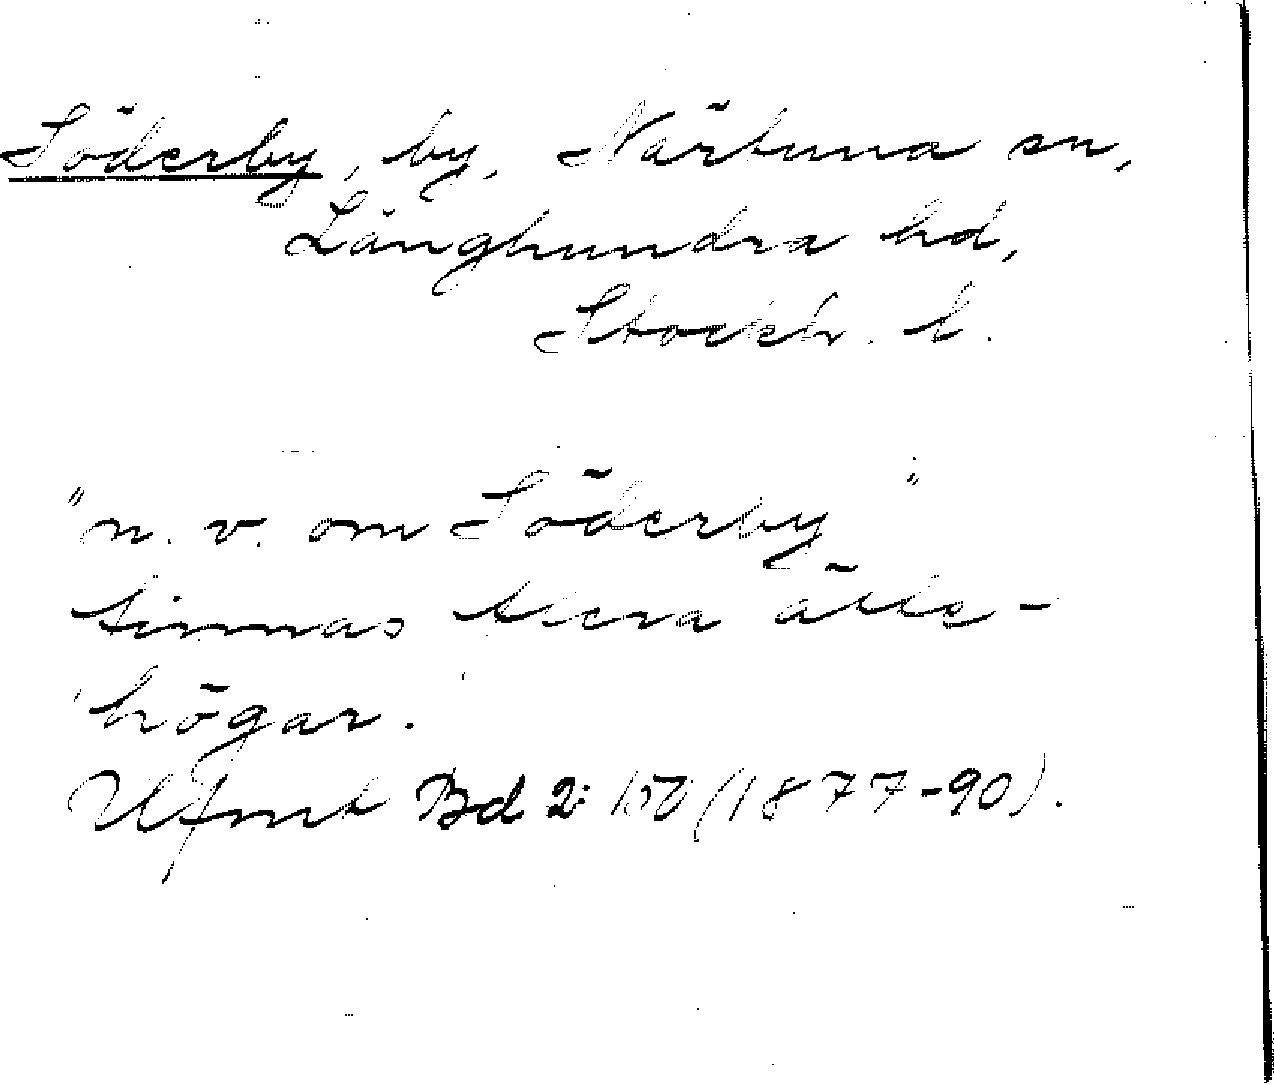 Söderby, by, Närtuna sn,
Långhundra hd,
Stockh. l.
"n. v. om Söderby"
finnas flera ätte-
högar.
Ufmt Bd 2: 150 (1877-90).